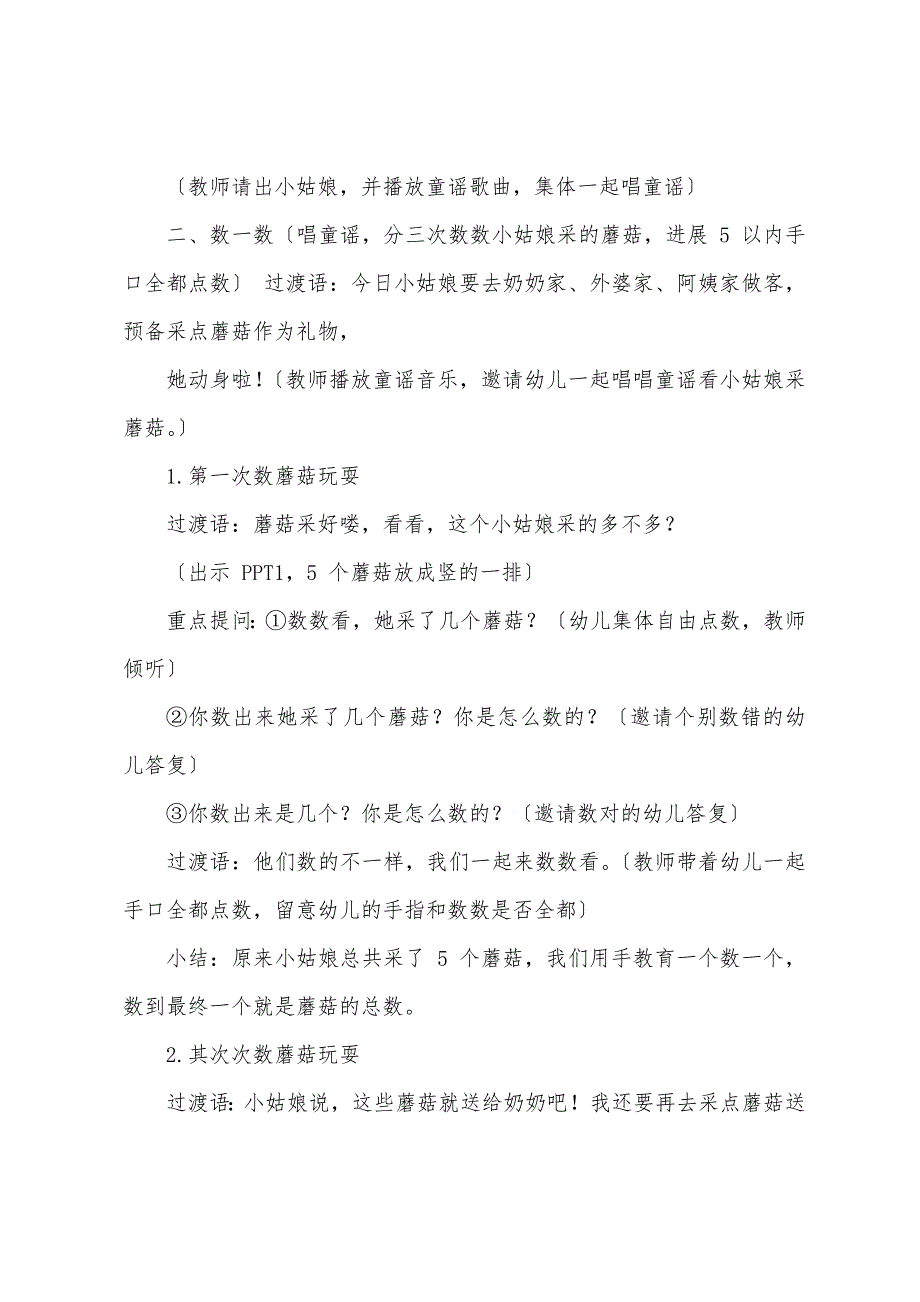 〔教师请出小姑娘，并播放童谣歌曲，集体一起唱童谣〕
二、数一数〔唱童谣，分三次数数小姑娘采的蘑菇，进展 5 以内手
口全都点数〕 过渡语：今日小姑娘要去奶奶家、外婆家、阿姨家做客，
预备采点蘑菇作为礼物，
她动身啦！〔教师播放童谣音乐，邀请幼儿一起唱唱童谣看小姑娘采
蘑菇。〕
1.第一次数蘑菇玩耍
过渡语：蘑菇采好喽，看看，这个小姑娘采的多不多？
〔出示 PPT1，5 个蘑菇放成竖的一排〕
重点提问：①数数看，她采了几个蘑菇？〔幼儿集体自由点数，教师
倾听〕
②你数出来她采了几个蘑菇？你是怎么数的？〔邀请个别数错的幼
儿答复〕
③你数出来是几个？你是怎么数的？〔邀请数对的幼儿答复〕
过渡语：他们数的不一样，我们一起来数数看。〔教师带着幼儿一起
手口全都点数，留意幼儿的手指和数数是否全都〕
小结：原来小姑娘总共采了 5 个蘑菇，我们用手教育一个数一个，
数到最终一个就是蘑菇的总数。
2.其次次数蘑菇玩耍
过渡语：小姑娘说，这些蘑菇就送给奶奶吧！我还要再去采点蘑菇送